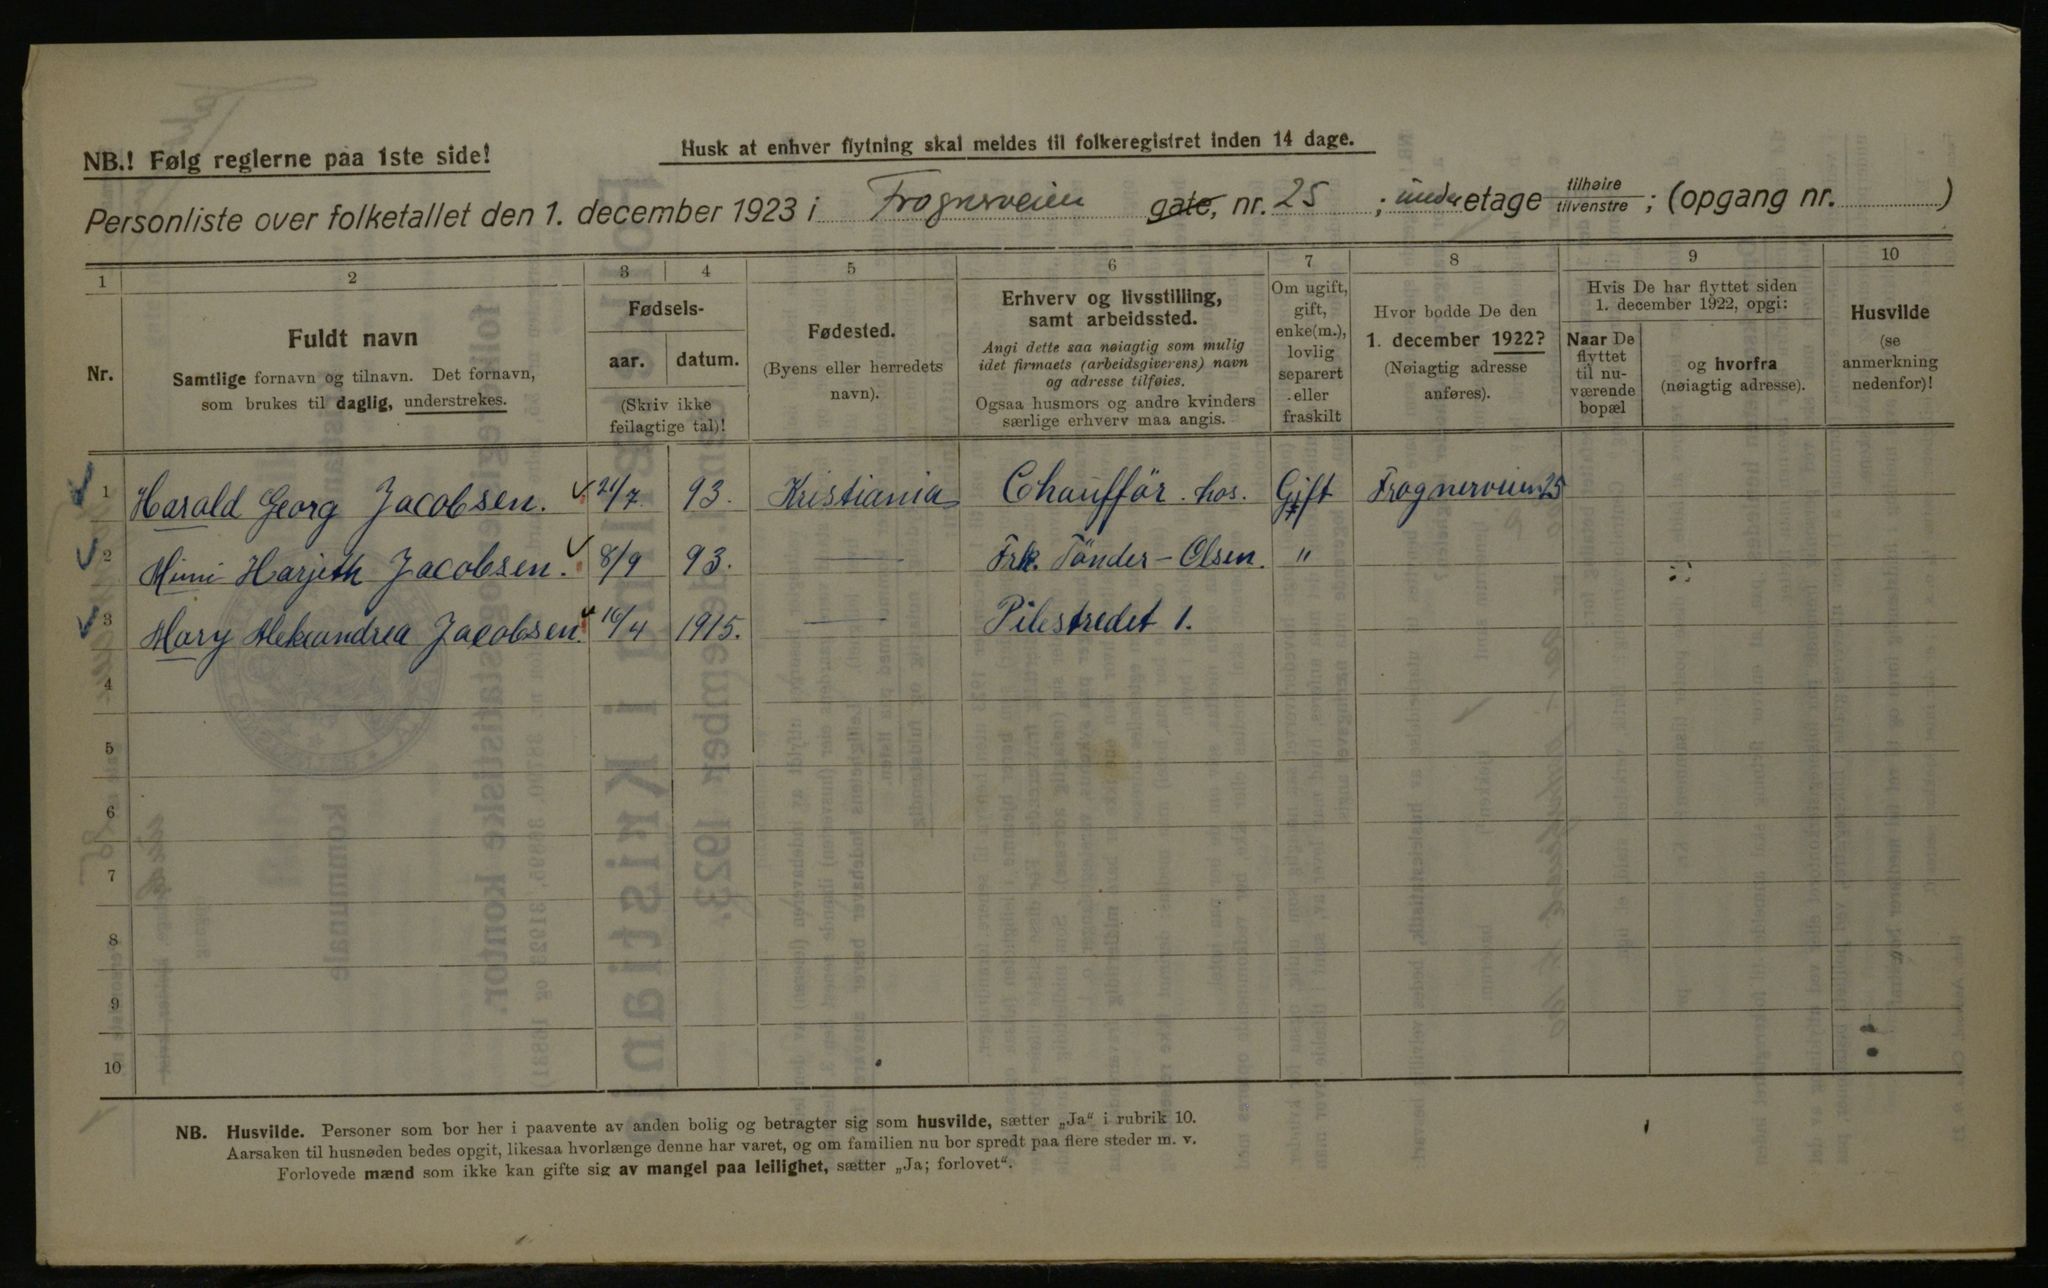 NB.! Følg reglerne paa 1ste side!
Husk at enhver flytning skal meldes til folkeregistret inden 14 dage.
Personliste over folketallet den 1. december 1923 i Frognerveien gate, nr. 25; under etage tilhøire tilvenstre; (opgang nr. )
1 2 3 4 5 6 7 8 9 10
Nr.
Fuldt navn
Samtlige fornavn og tilnavn. Det fornavn,
som brukes til daglig, understrekes.
Fødsels-
aar. datum.
(Skriv ikke
feilagtige tal)!
Fødested.
(Byens eller herredets
navn).
Erhverv og livsstilling,
samt arbeidssted.
Angi dette saa nøiagtig som mulig
idet firmaets (arbeidsgiverens) navn
og adresse tilføies.
Ogsaa husmors og andre kvinders
særlige erhverv maa angis.
Om ugift,
gift,
enke(m.),
lovlig
separert
eller
fraskilt
Hvor bodde De den
1. december 1922?
(Nøiagtig adresse
anføres).
Hvis De har flyttet siden
1. december 1922, opgi:
Naar De
flyttet
til nu-
værende
bopæl
og hvorfra
(nøiagtig adresse).
Husvilde
(se
anmerkning
nedenfor)!
1 Harald Georg Jacobsen. 21/7 93. Kristiania Chaufför hos. Gift Frognerveien 25
2 Mimi Harjeth Jacobsen. 8/9 93. — Frk. Tönder - Olsen. "
3 Mary Aleksandrea Jacobsen. 16/4 1915. — Pilestredet 1.
4
5
6
7
8
9
10
NB. Husvilde. Personer som bor her i paavente av anden bolig og betragter sig som husvilde, sætter „Ja“ i rubrik 10.
Aarsaken til husnøden bedes opgit, likesaa hvorlænge denne har varet, og om familien nu bor spredt paa flere steder m. v.
Forlovede mænd som ikke kan gifte sig av mangel paa leilighet, sætter „Ja; forlovet“.